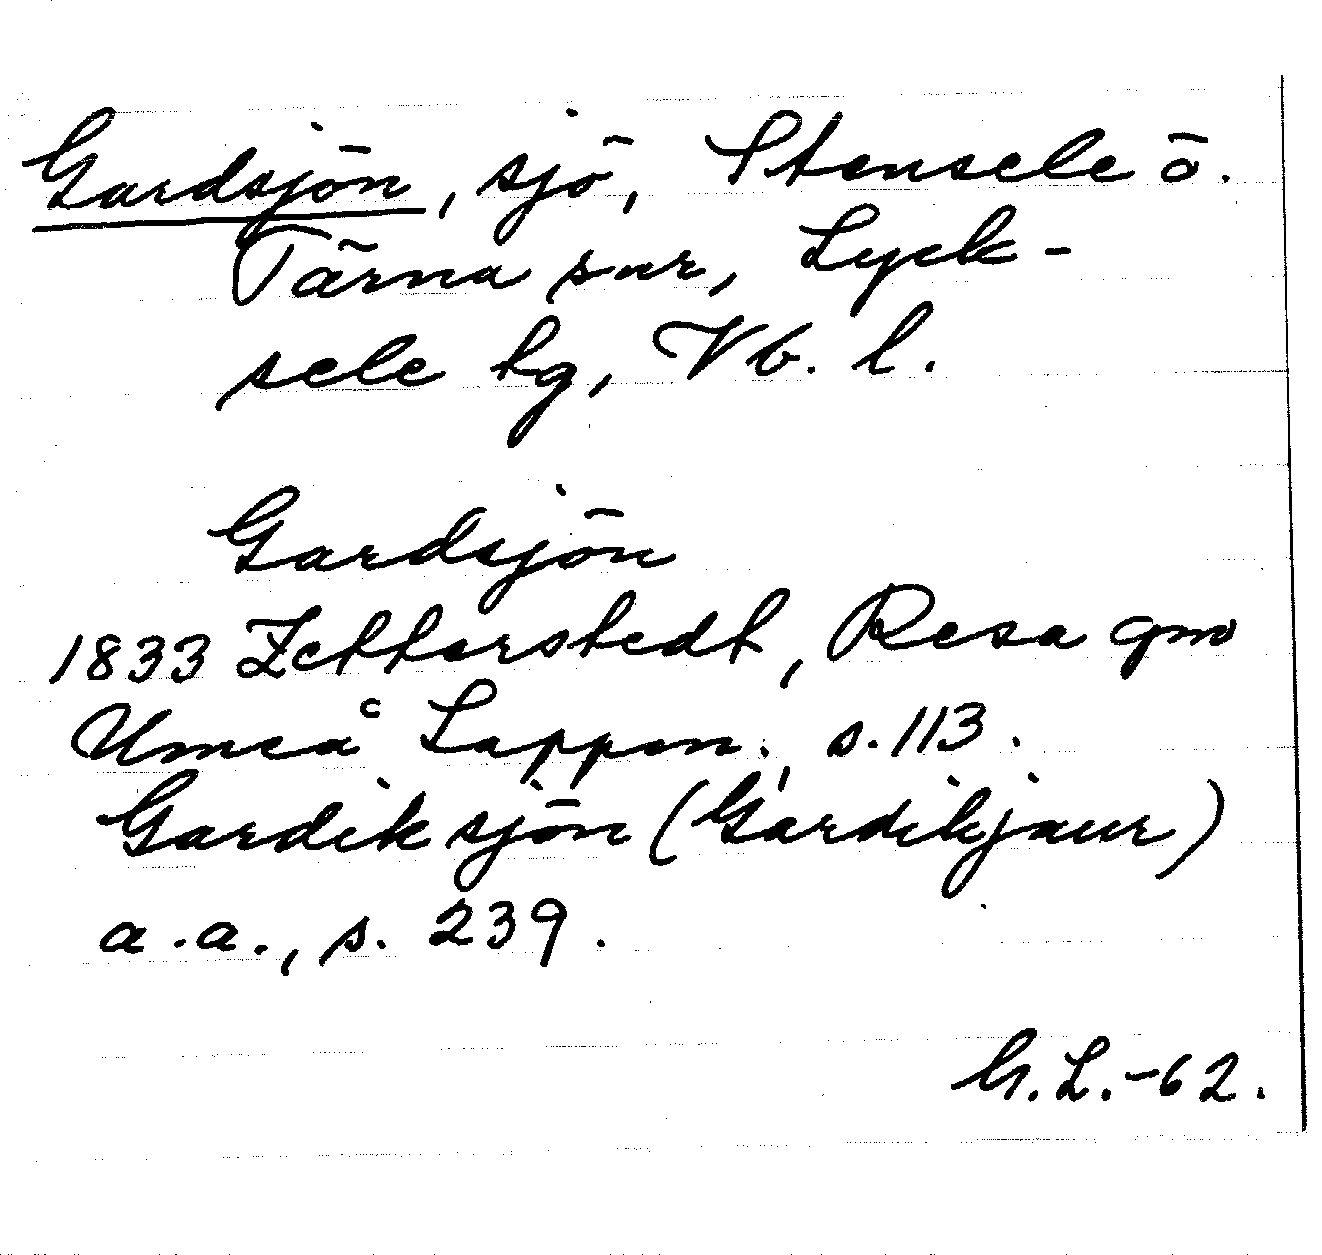 Gardsjön, sjö, Stensele ö.
Tärna snr, Lyck-
sele hg, Vb. l.
Gardsjön
1833 Zetterstedt, Resa gm
Umeå Lappm., s. 113.
Gardiksjön (Gardikjaur)
a.a., s. 239.
G.L.-62.